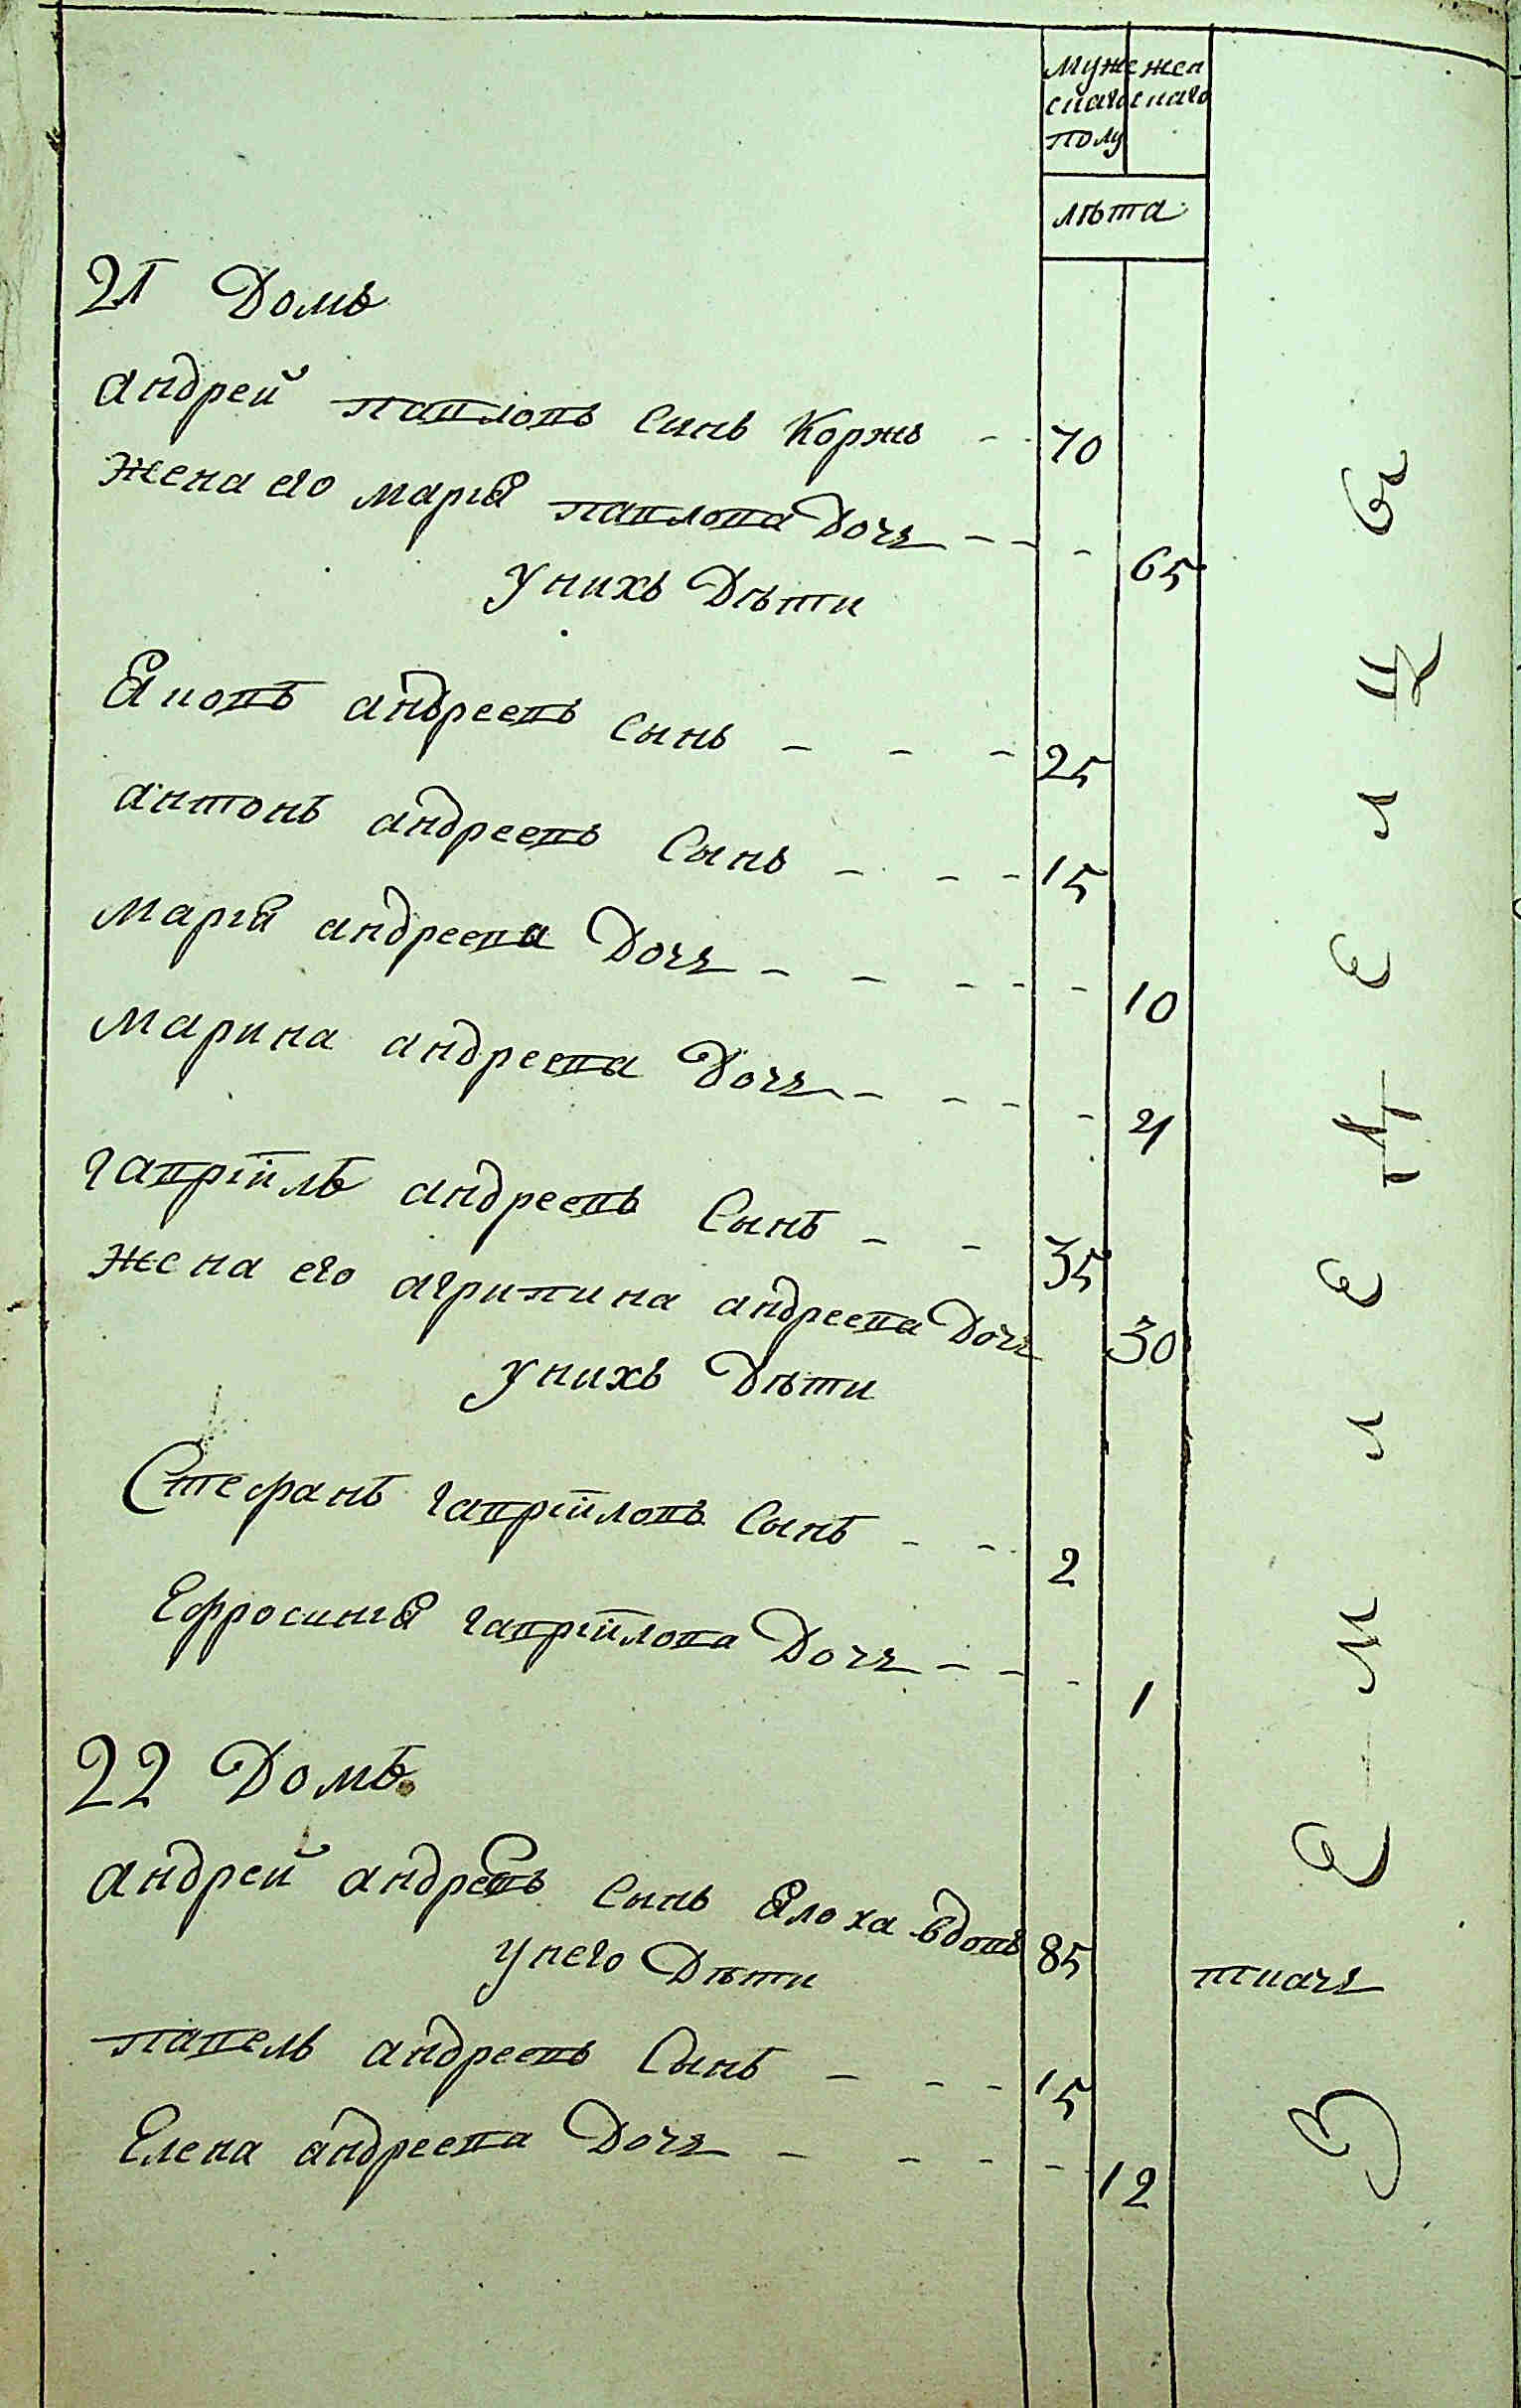 муже жен
скаго скаго
полу
лѣта
21 Домъ
андрей павловъ синъ Коржъ 70
жена его марія павлова Дочь 65
у нихъ Дѣти
Яковъ андреевъ сынъ 25
антонъ андреевъ Сынъ 15
марія андреева Дочь 10
марина андреева Дочь 4
гавріилъ андреевъ Сынъ 35
жена его агрипина андреева Дочь 30
у нихъ Дѣти
Стефанъ гавріиловъ Сынъ 2
Ефросинія гавріилова Дочь 1
22 Домъ
андрей андреевъ сынъ Ялоха вдовъ 85 ткачь
у него Дѣти
павелъ андреевъ Сынъ 15
Елена андреева Дочь 12
З е м л е д е л ц ы